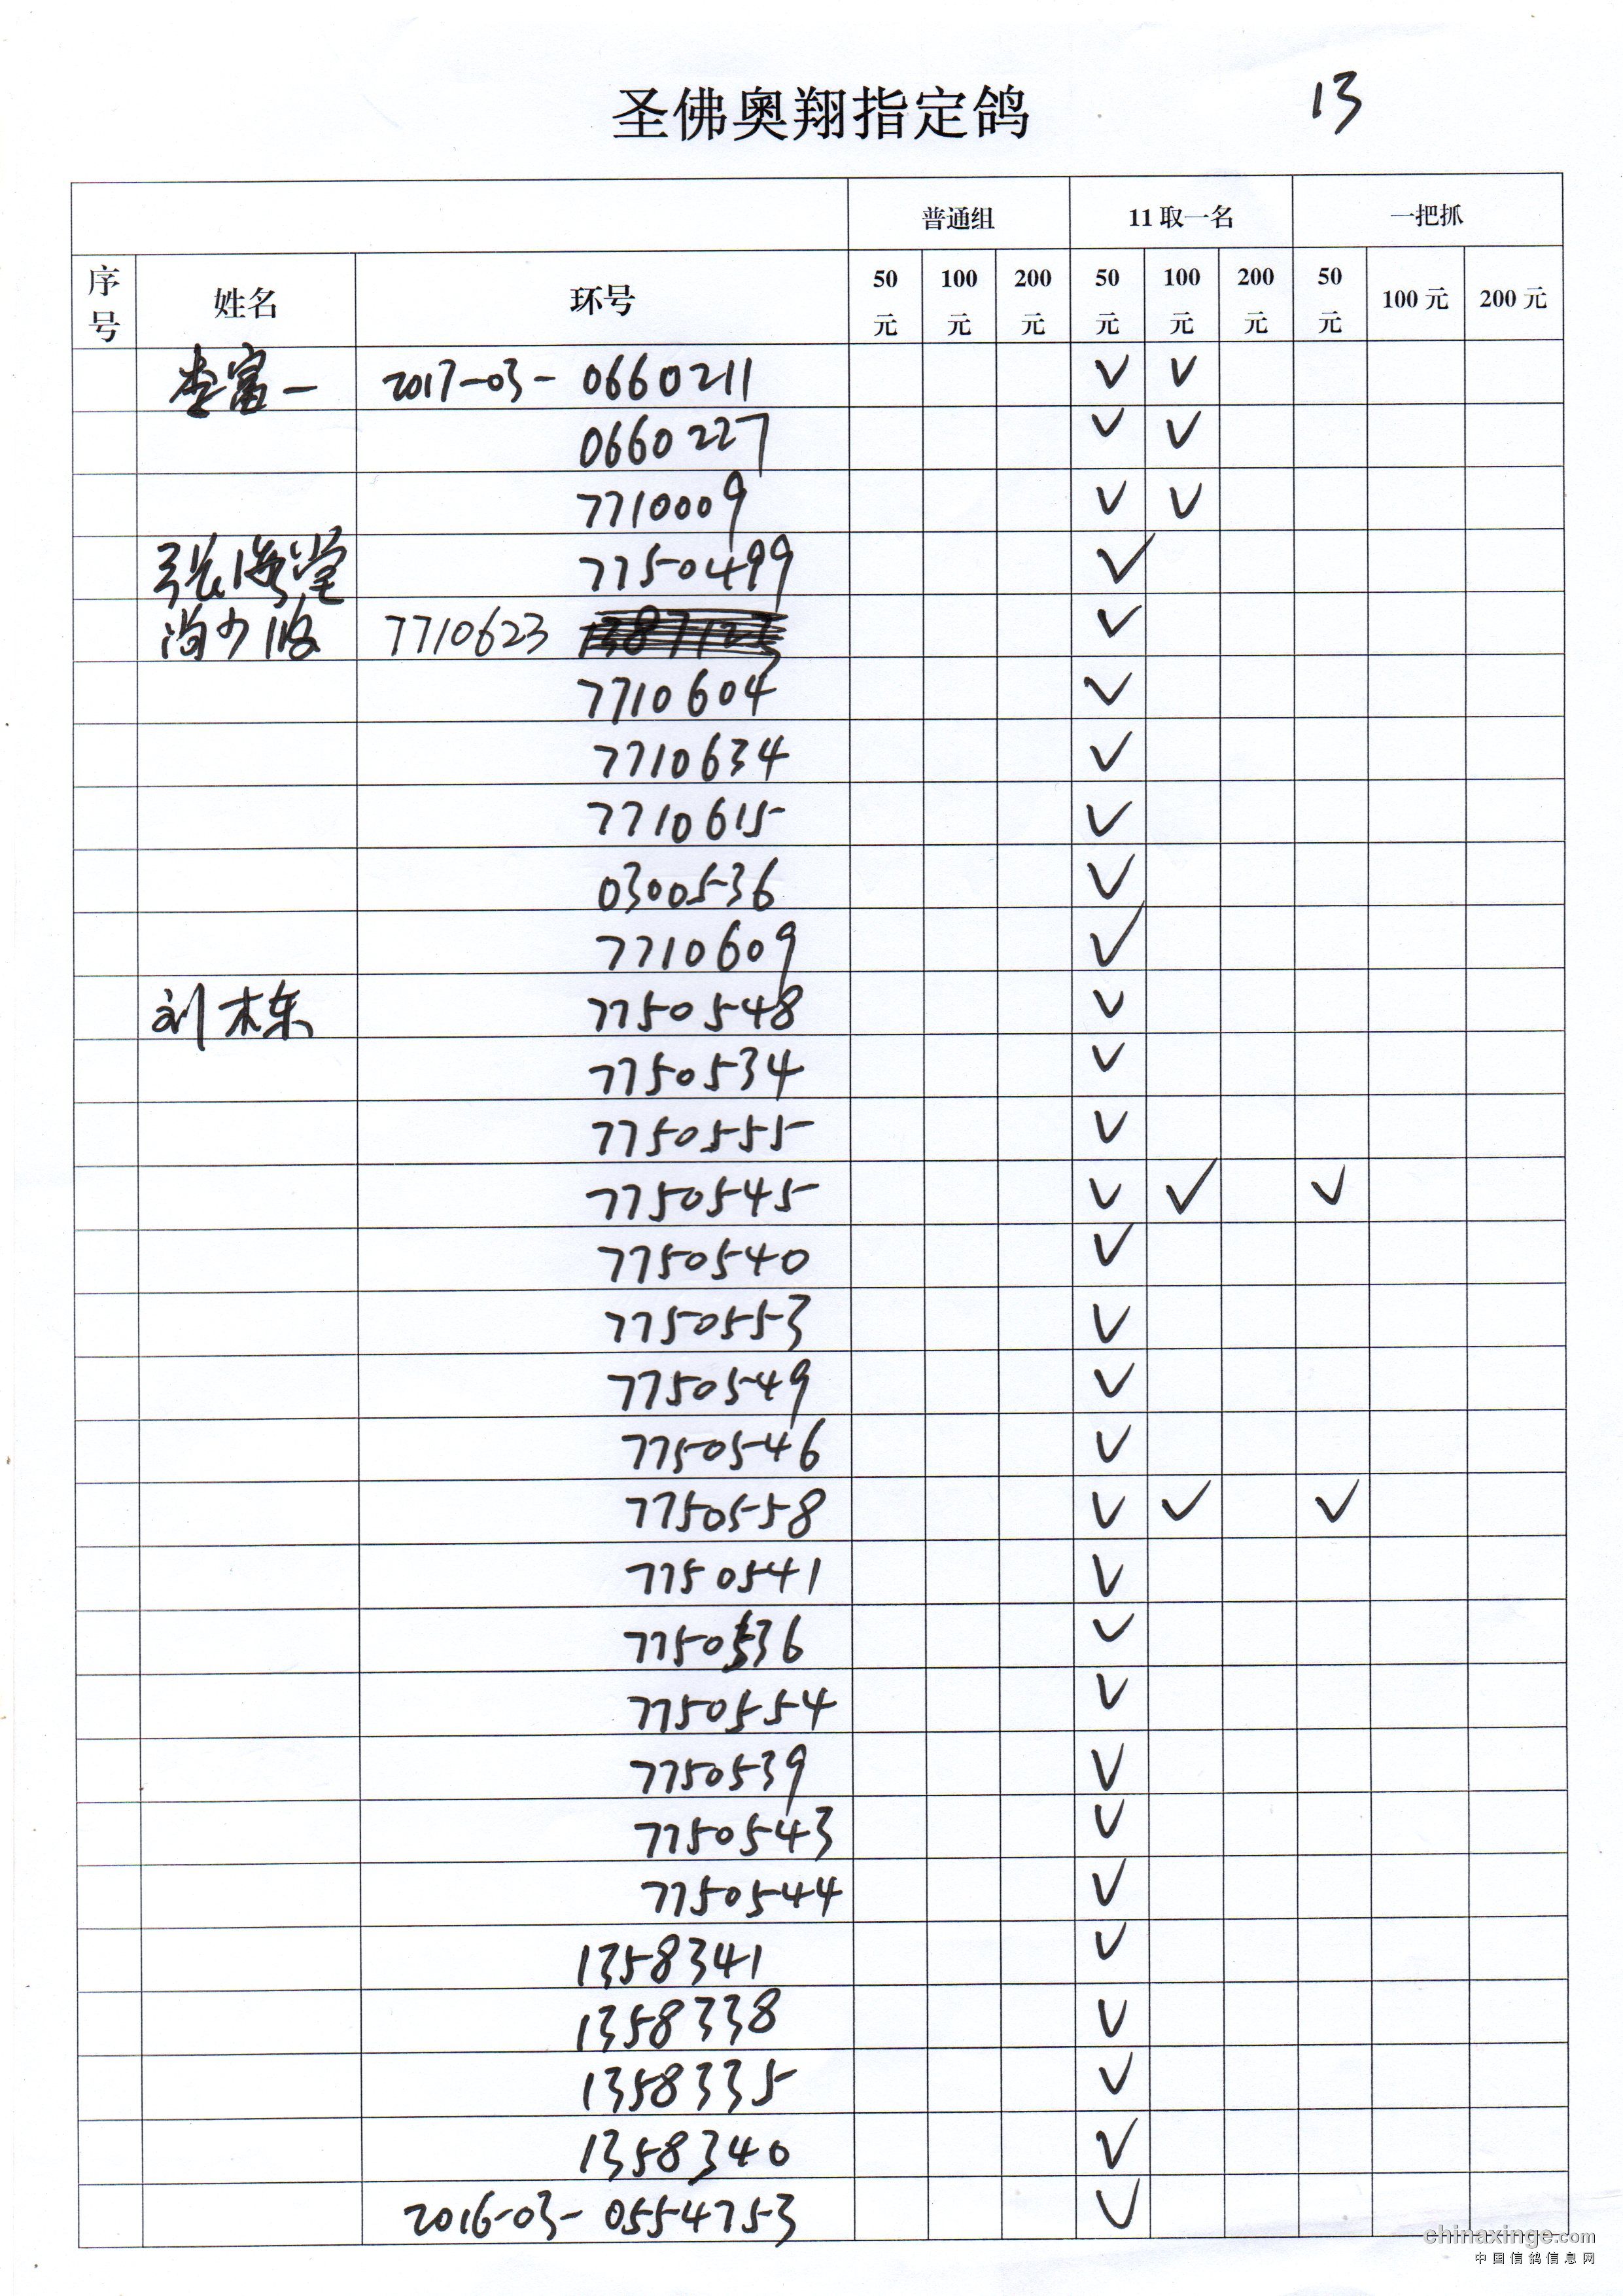 圣佛奥翔指定鸽 13
普通组 11取一名 一把抓
序号 姓名 环号 50元 100元 200元 50元 100元 200元 50元 100元 200元
李富一 2017-03- 0660211 √ √
0660227 √ √
7710009 √ √
张海堂 7750499 √
7710623 √
7710604 √
7710634 √
7710615 √
0300536 √
7710609 √
刘栋 7750548 √
7750534 √
7750555 √
7750545 √ √ √
7750540 √
7750553 √
7750549 √
7750546 √
7750558 √ √ √
7750541 √
7750536 √
7750554 √
7750539 √
7750543 √
7750544 √
1358341 √
1358338 √
1358335 √
1358340 √
2016-03- 0554753 √
chinaxinge.com
中国信鸽信息网